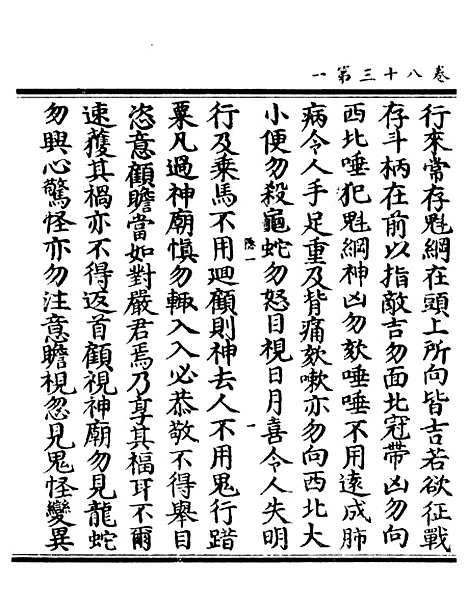 卷八十三第一
行來常存魁綱在頭上所向皆吉若欲征戰
存斗柄在前以指敵吉勿面北冠帶凶勿向
西北唾犯魁綱神凶勿欬唾唾不用遠成肺
病令人手足重及背痛欬嗽亦勿向西北大
小便勿殺龜蛇勿怒目視日月喜令人失明
行及乗馬不用廻顧則神去人不用鬼行踖
粟凡過神廟慎勿輙入入必恭敬不得舉目
恣意顧瞻當如對嚴君焉乃享其福耳不爾
速獲其禍亦不得返首顧視神廟勿見龍蛇
勿興心驚怪亦勿注意瞻視忽見鬼怪變異